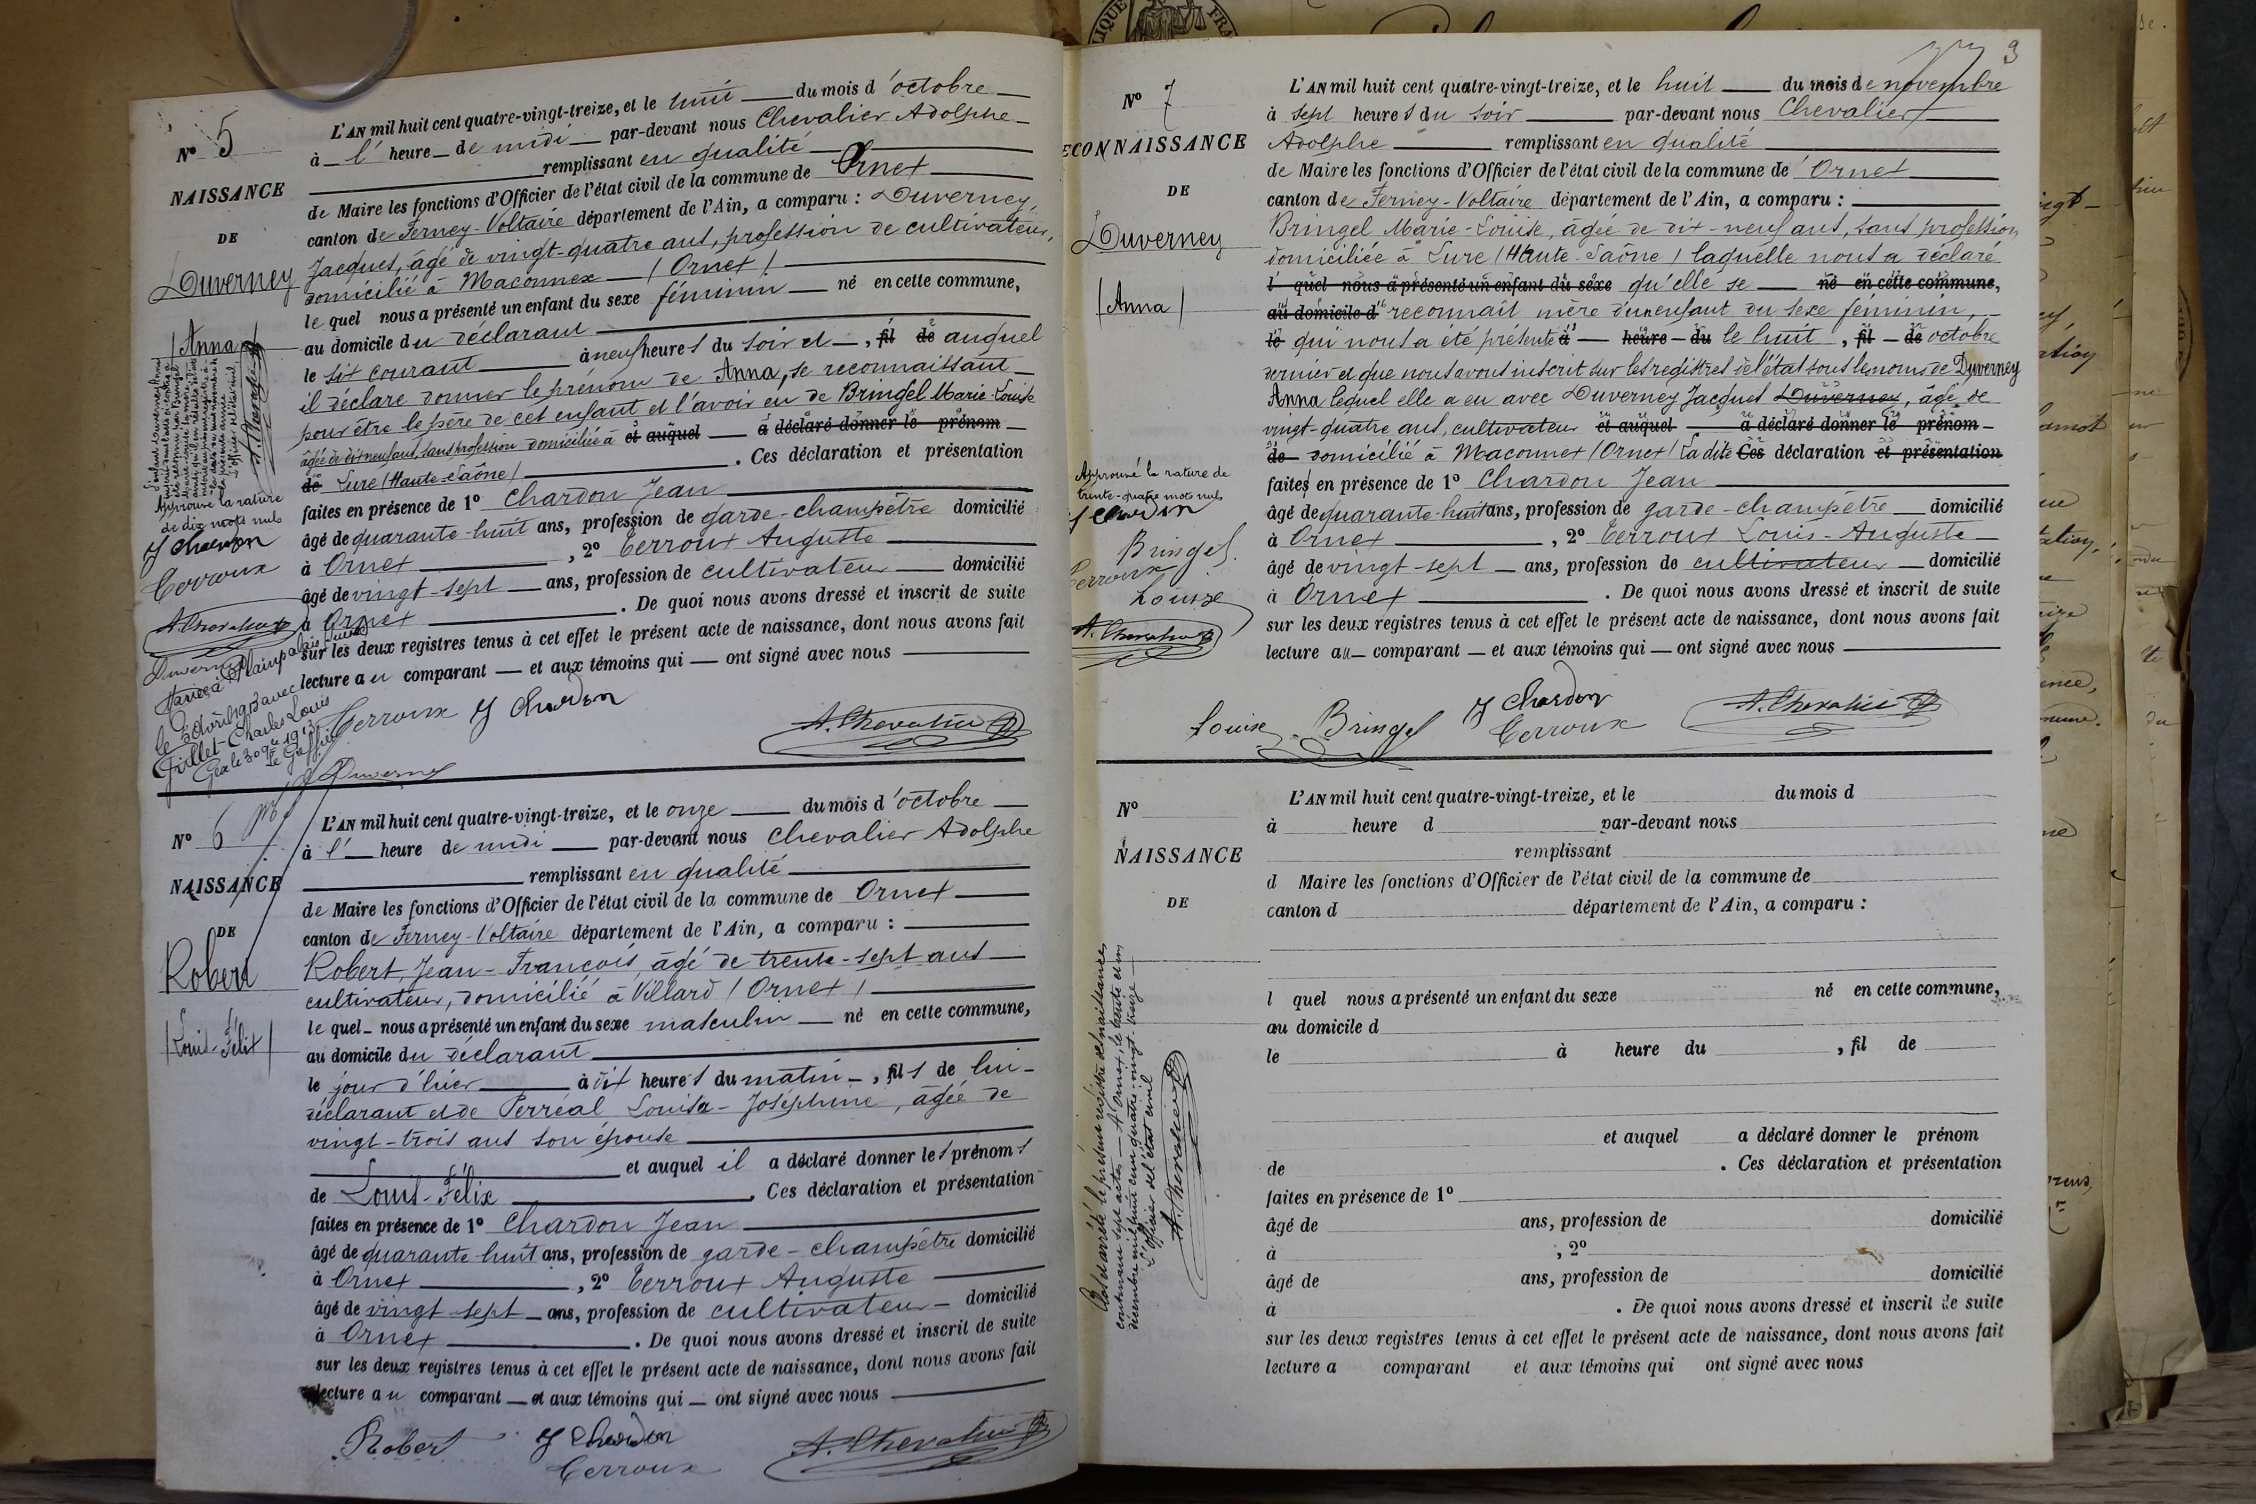 N° 5
NAISSANCE
DE
Duverney
/ Anna /
Approuvé la rature
de dix mots nuls
J Chardon
Terroux
A. Chevalier
Duverney
Mariée à Plainpalais
le 3 Avril 1913 avec
Grillet Charles Louis
L'AN mil huit cent quatre-vingt-treize, et le huit du mois d'octobre
à l'heure de midi par-devant nous Chevalier Adolphe
remplissant en qualité
de Maire les fonctions d'Officier de l'état civil de la commune de Ornex
canton de Ferney-Voltaire département de l'Ain, a comparu : Duverney,
Jacques, âgé de vingt-quatre ans, profession de cultivateur,
domicilié à Maconnex / Ornex /
le quel nous a présenté un enfant du sexe féminin né en cette commune,
au domicile du déclarant
le six courant à neuf heures du soir et , fil de auquel
il déclare donner le prénom de Anna, se reconnaissant
pour être le père de cet enfant et l'avoir eu de Bringel Marie-Louise
âgée de dix neuf ans, sans profession domiciliée à et auquel a déclaré donner le prénom
de Lure / Haute-Saône / . Ces déclaration et présentation
faites en présence de 1° Chardon Jean
âgé de quarante-huit ans, profession de garde-champêtre domicilié
à Ornex , 2° Terroux Auguste
âgé de vingt-sept ans, profession de cultivateur domicilié
à Ornex . De quoi nous avons dressé et inscrit de suite
sur les deux registres tenus à cet effet le présent acte de naissance, dont nous avons fait
lecture au comparant et aux témoins qui ont signé avec nous
Terroux J Chardon
A. Chevalier
J Duverney
N° 6
NAISSANCE
DE
Robert
/ Louis-Félix /
L'AN mil huit cent quatre-vingt-treize, et le onze du mois d'octobre
à l' heure de midi par-devant nous Chevalier Adolphe
remplissant en qualité
de Maire les fonctions d'Officier de l'état civil de la commune de Ornex
canton de Ferney-Voltaire département de l'Ain, a comparu :
Robert, Jean-François, âgé de trente-sept ans
cultivateur, domicilié à Villard / Ornex /
le quel nous a présenté un enfant du sexe masculin né en cette commune,
au domicile du déclarant
le jour d'hier à dix heures du matin , fils de lui
déclarant et de Perréal Louisa-Joséphine, âgée de
vingt-trois ans son épouse
et auquel il a déclaré donner les prénoms
de Louis-Félix . Ces déclaration et présentation
faites en présence de 1° Chardon Jean
âgé de quarante-huit ans, profession de garde-champêtre domicilié
à Ornex , 2° Terroux Auguste
âgé de vingt-sept ans, profession de cultivateur domicilié
à Ornex . De quoi nous avons dressé et inscrit de suite
sur les deux registres tenus à cet effet le présent acte de naissance, dont nous avons fait
lecture au comparant et aux témoins qui ont signé avec nous
Robert J Chardon A. Chevalier
Terroux
3
N° 7
ECONNAISSANCE
DE
Duverney
/ Anna /
Approuvé la rature de
trente-quatre mots nuls
J Chardon
Bringel
Terroux
Louise
A. Chevalier
L'AN mil huit cent quatre-vingt-treize, et le huit du mois de novembre
à sept heures du soir par-devant nous Chevalier
Adolphe remplissant en qualité
de Maire les fonctions d'Officier de l'état civil de la commune de Ornex
canton de Ferney-Voltaire département de l'Ain, a comparu :
Bringel Marie-Louise, âgée de dix-neuf ans, sans profession
domiciliée à Lure / Haute-Saône / laquelle nous a déclaré
l quel nous a présenté un enfant du sexe qu'elle se né en cette commune,
au domicile d reconnaît mère d'un enfant du sexe féminin,
le qui nous a été présenté à heure du le huit , fil de octobre
dernier et que nous avons inscrit sur les registres de l'état sous les noms de Duverney
Anna lequel elle a eu avec Duverney Jacques Duverney, âgé de
vingt-quatre ans, cultivateur et auquel a déclaré donner le prénom
de domicilié à Maconnex / Ornex / La dite Ces déclaration et présentation
faites en présence de 1° Chardon Jean
âgé de quarante-huit ans, profession de garde-champêtre domicilié
à Ornex , 2° Terroux Louis-Auguste
âgé de vingt-sept ans, profession de cultivateur domicilié
à Ornex . De quoi nous avons dressé et inscrit de suite
sur les deux registres tenus à cet effet le présent acte de naissance, dont nous avons fait
lecture au comparant et aux témoins qui ont signé avec nous
Louise Bringel J Chardon A. Chevalier
Terroux
N°
NAISSANCE
DE
Clos et arrêté le présent registre de naissances
contenant sept actes. A Ornex, le trente et un
décembre mil huit cent quatre-vingt-treize
L'officier de l'état civil
A. Chevalier
L'AN mil huit cent quatre-vingt-treize, et le du mois d
à heure d par-devant nous
remplissant
d Maire les fonctions d'Officier de l'état civil de la commune de
canton d département de l'Ain, a comparu :
l quel nous a présenté un enfant du sexe né en cette commune,
au domicile d
le à heure du , fil de
et auquel a déclaré donner le prénom
de . Ces déclaration et présentation
faites en présence de 1°
âgé de ans, profession de domicilié
à , 2°
âgé de ans, profession de domicilié
à . De quoi nous avons dressé et inscrit de suite
sur les deux registres tenus à cet effet le présent acte de naissance, dont nous avons fait
lecture a comparant et aux témoins qui ont signé avec nous